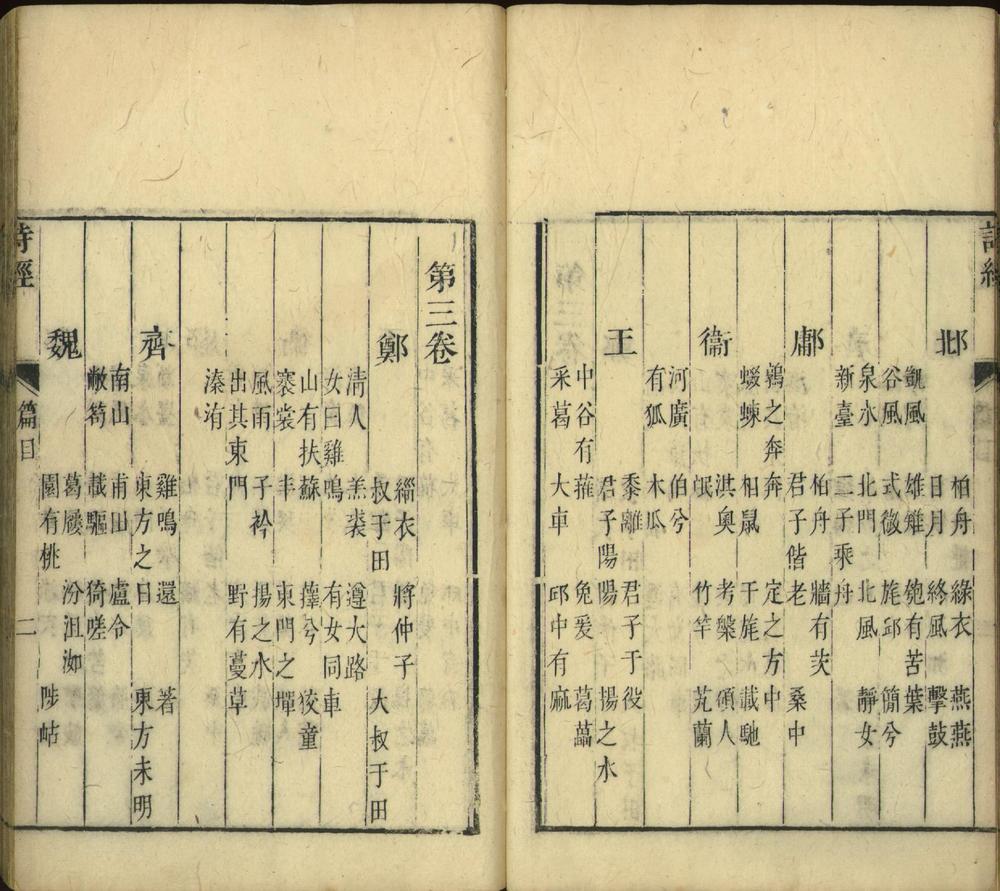 詩經
邶 柏舟 綠衣 燕燕
日月 終風 擊鼓
凱風 雄雉 匏有苦葉
谷風 式微 旄邱 簡兮
泉水 北門 北風 靜女
新臺 二子乘舟
鄘 柏舟 牆有茨
君子偕老 桑中
鶉之奔奔 定之方中
蝃蝀 相鼠 干旄 載馳
衞 淇奧 考槃 碩人
氓 竹竿 芄蘭
河廣 伯兮
有狐 木瓜
王 黍離 君子于役
君子陽陽 揚之水
中谷有蓷 兔爰 葛藟
采葛 大車 邱中有麻
第三卷
鄭 緇衣 將仲子
叔于田 大叔于田
清人 羔裘 遵大路
女曰雞鳴 有女同車
山有扶蘇 蘀兮 狡童
褰裳 丰 東門之墠
風雨 子衿 揚之水
出其東門 野有蔓草
溱洧
齊 雞鳴 還 著
東方之日 東方未明
南山 甫田 盧令
敝笱 載驅 猗嗟
魏 葛屨 汾沮洳
園有桃 陟岵
詩經 篇目 二